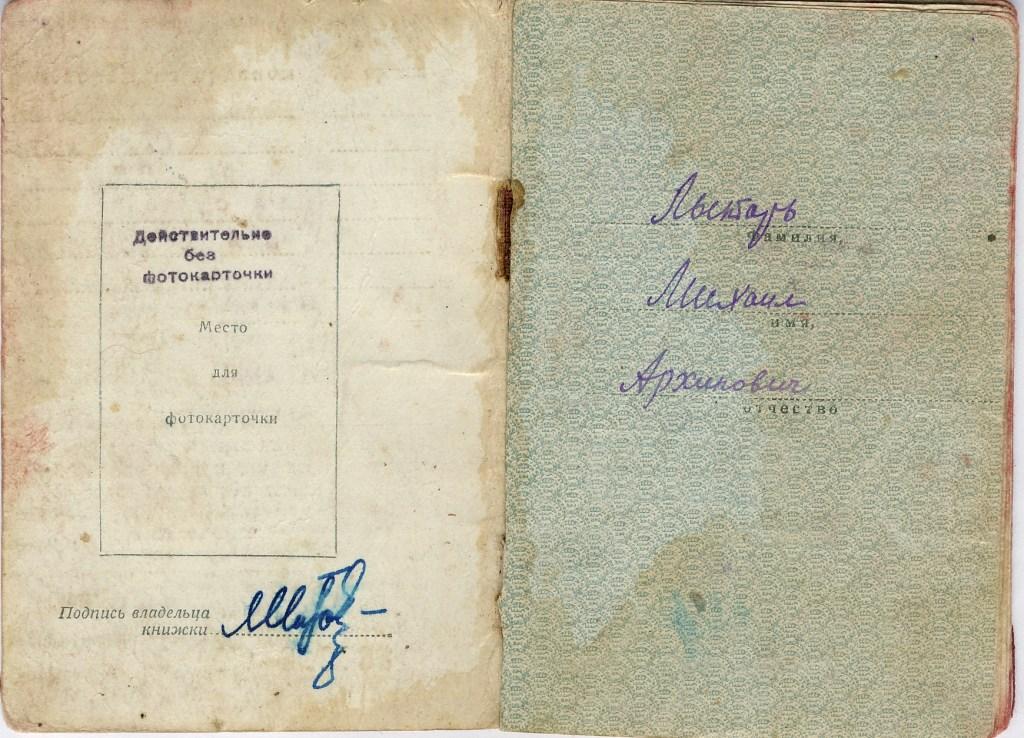 Действительно
без
фотокарточки
Место
для
фотокарточки
Подпись владельца
книжки
Лыктарь
фамилия,
Михаил
имя,
Архипович
отчество